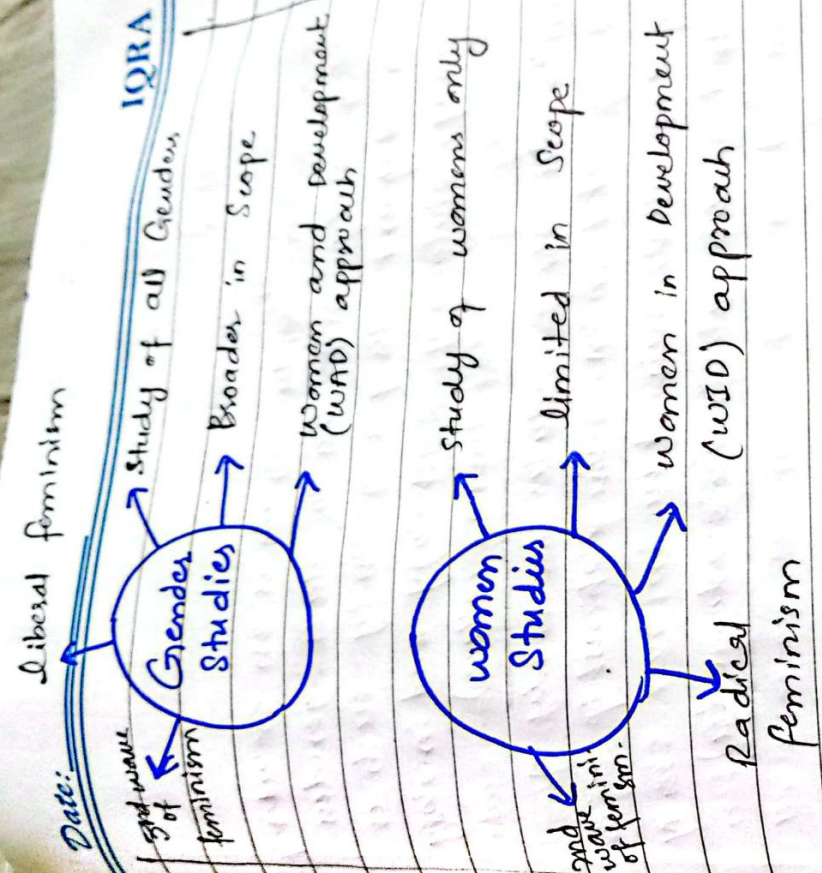 IQRA
Date:
liberal feminism
Gender
Studies
Study of all Genders
Broader in Scope
Women and Development
(WAD) approach
wave
of
feminism
women
Studies
Study of womens only
limited in Scope
Women in Development
(WID) approach
Radical
feminism
2nd
wave
of